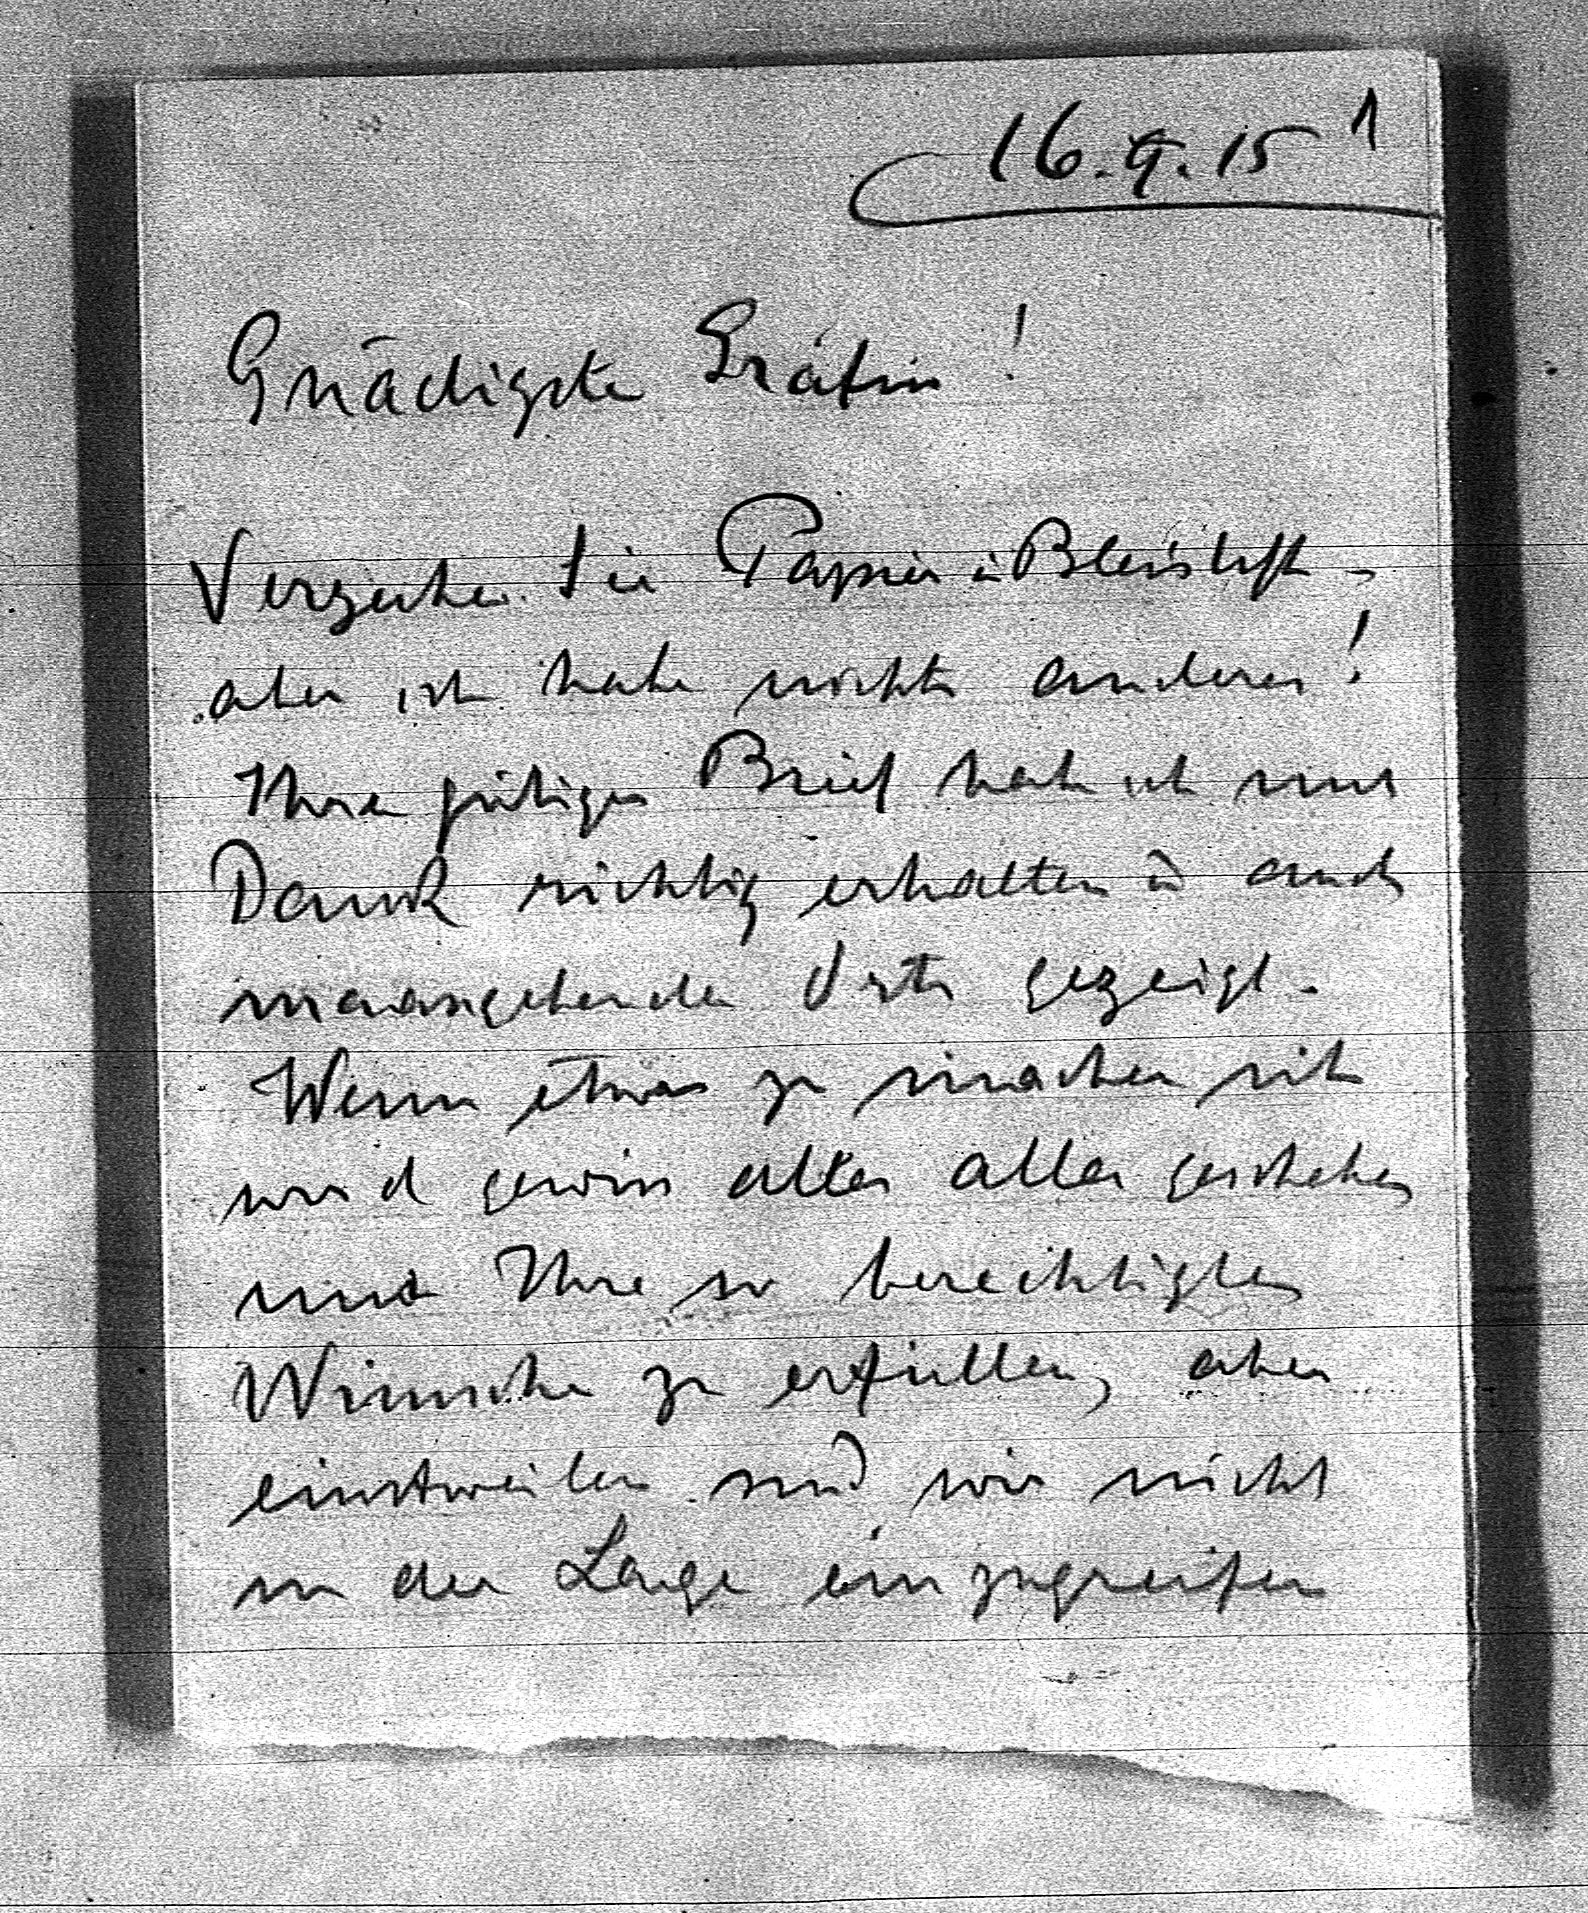 16.9.15 1
Gnädigste Gräfin!
Verzeihen Sie Papier u Bleistift -
aber ich habe nichts anderes!
Ihren gütigen Brief habe ich mit
Dank richtig erhalten u auch
maassgebenden Orts gezeigt.
Wenn etwas zu machen ist
wird gewiss alles geschehen
um Ihre so berechtigten
Wünsche zu erfüllen, aber
einstweilen sind wir nicht
in der Lage einzugreifen